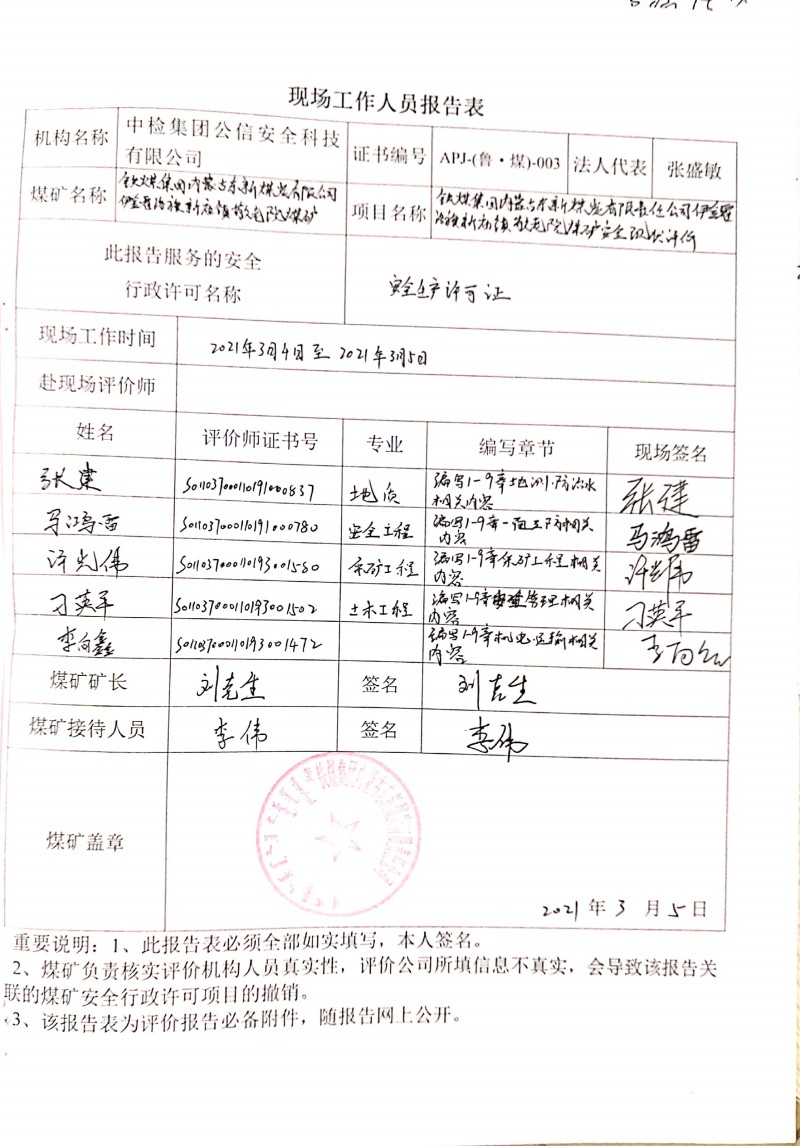 现场工作人员报告表
机构名称 中检集团公信安全科技有限公司 证书编号 APJ-(鲁·煤)-003 法人代表 张盛敏
煤矿名称 项目名称
此报告服务的安全
行政许可名称 安全生产许可证
现场工作时间 2021年3月4日至2021年3月5日
赴现场评价师
姓名 评价师证书号 专业 编写章节 现场签名
张建 S011037000110191000837 地质 编写1-9章地测防治水相关内容 张建
马鸿雷 S011037000110191000780 安全工程 编写1-9章一通三防相关内容 马鸿雷
许光伟 S011037000110193001580 采矿工程 编写1-9章采矿工程相关内容 许光伟
刁英军 S011037000110193001502 土木工程 编写1-9章安全管理相关内容 刁英军
李向鑫 S011037000110193001472 编写1-9章机电运输相关内容
煤矿矿长 签名
煤矿接待人员 李伟 签名 李伟
煤矿盖章
2021年3月5日
重要说明：1、此报告表必须全部如实填写，本人签名。
2、煤矿负责核实评价机构人员真实性，评价公司所填信息不真实，会导致该报告关
联的煤矿安全行政许可项目的撤销。
3、该报告表为评价报告必备附件，随报告网上公开。